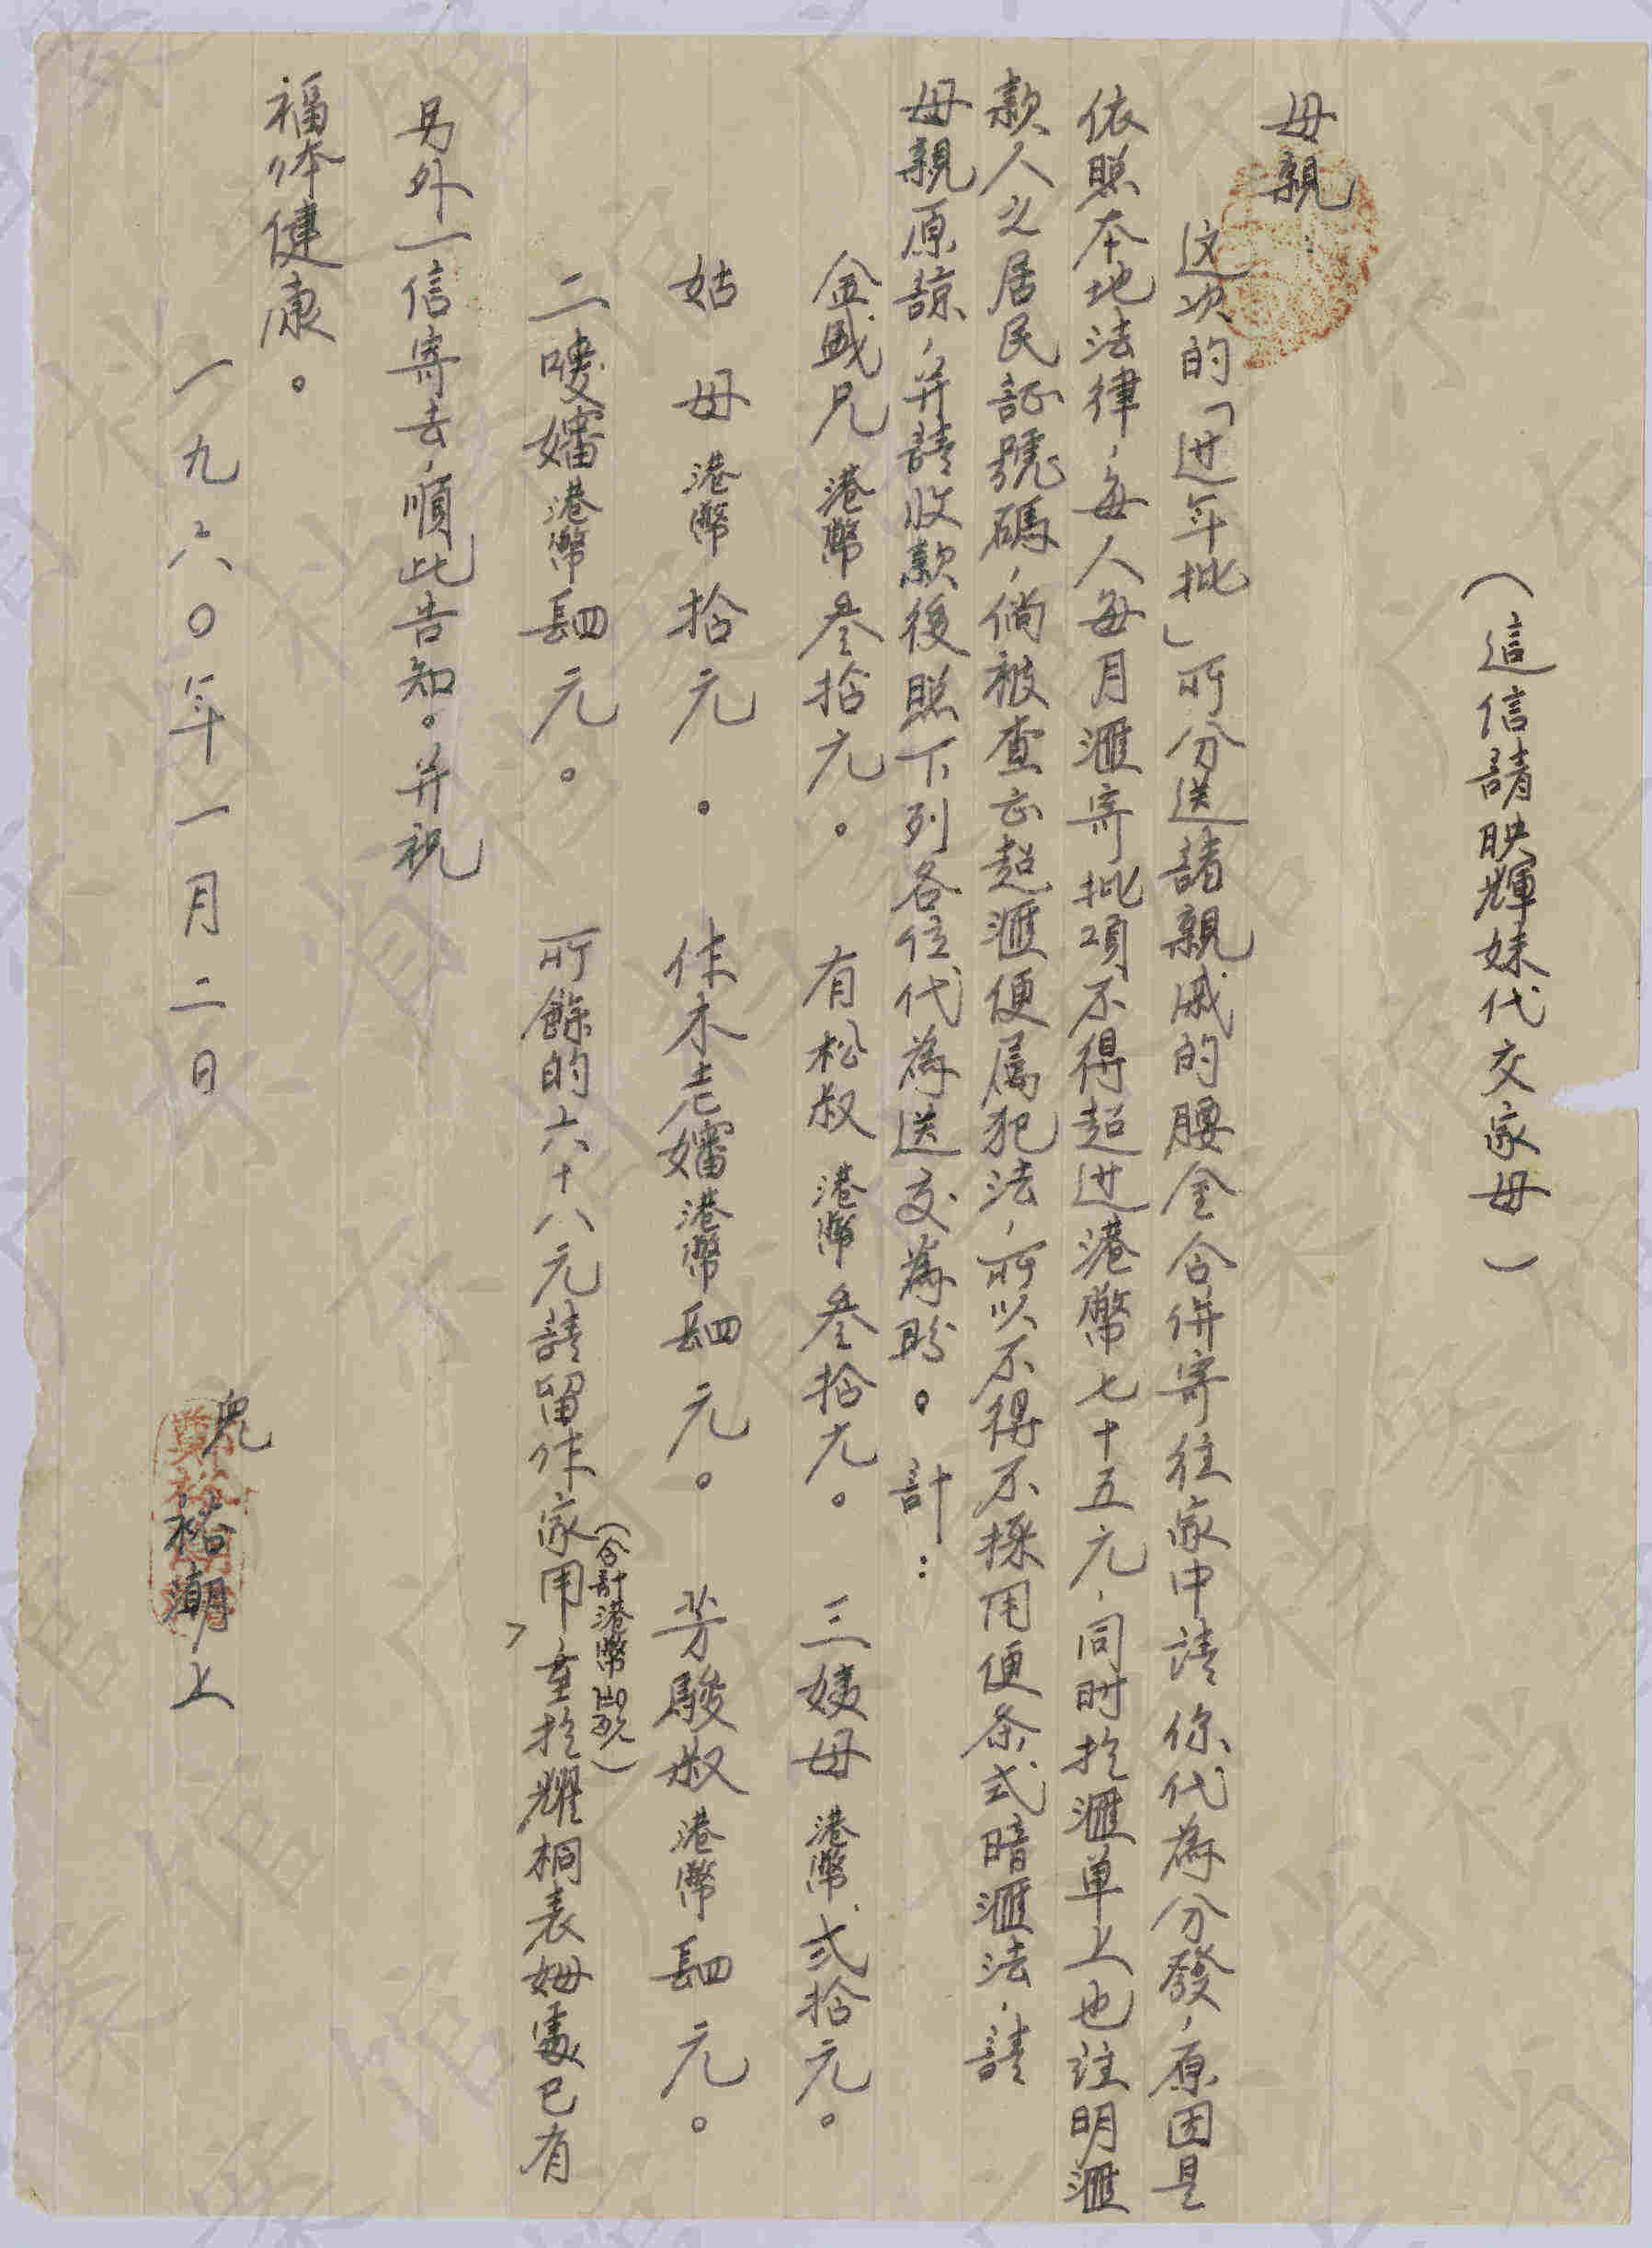 （這信請映輝妹代交家母）
母親：
这次的「过年批」所分送諸親戚的腰金合併寄往家中請你代為分發，原因是
依照本地法律，每人每月滙寄批項不得超过港幣七十五元，同时於滙单上也註明滙
款人之居民証號碼，倘被查出超滙便属犯法，所以不得不採用便条式暗滙法，請
母親原諒，并請收款後照下列各位代為送交為盼。計：
金盛兄港幣叁拾元。 有松叔港幣叁拾元。 三姨母港幣弍拾元。
姑母港幣拾元。 佧木老嬸港幣肆元。 芳駿叔港幣肆元。
（合計港幣）
二嘜嬸港幣肆元。 所餘的六十八元請留作家用，至於耀桐表姆處已有
另外一信寄去，順此告知。并祝
福体健康。
一九六〇年一月二日
兒 裕潮上